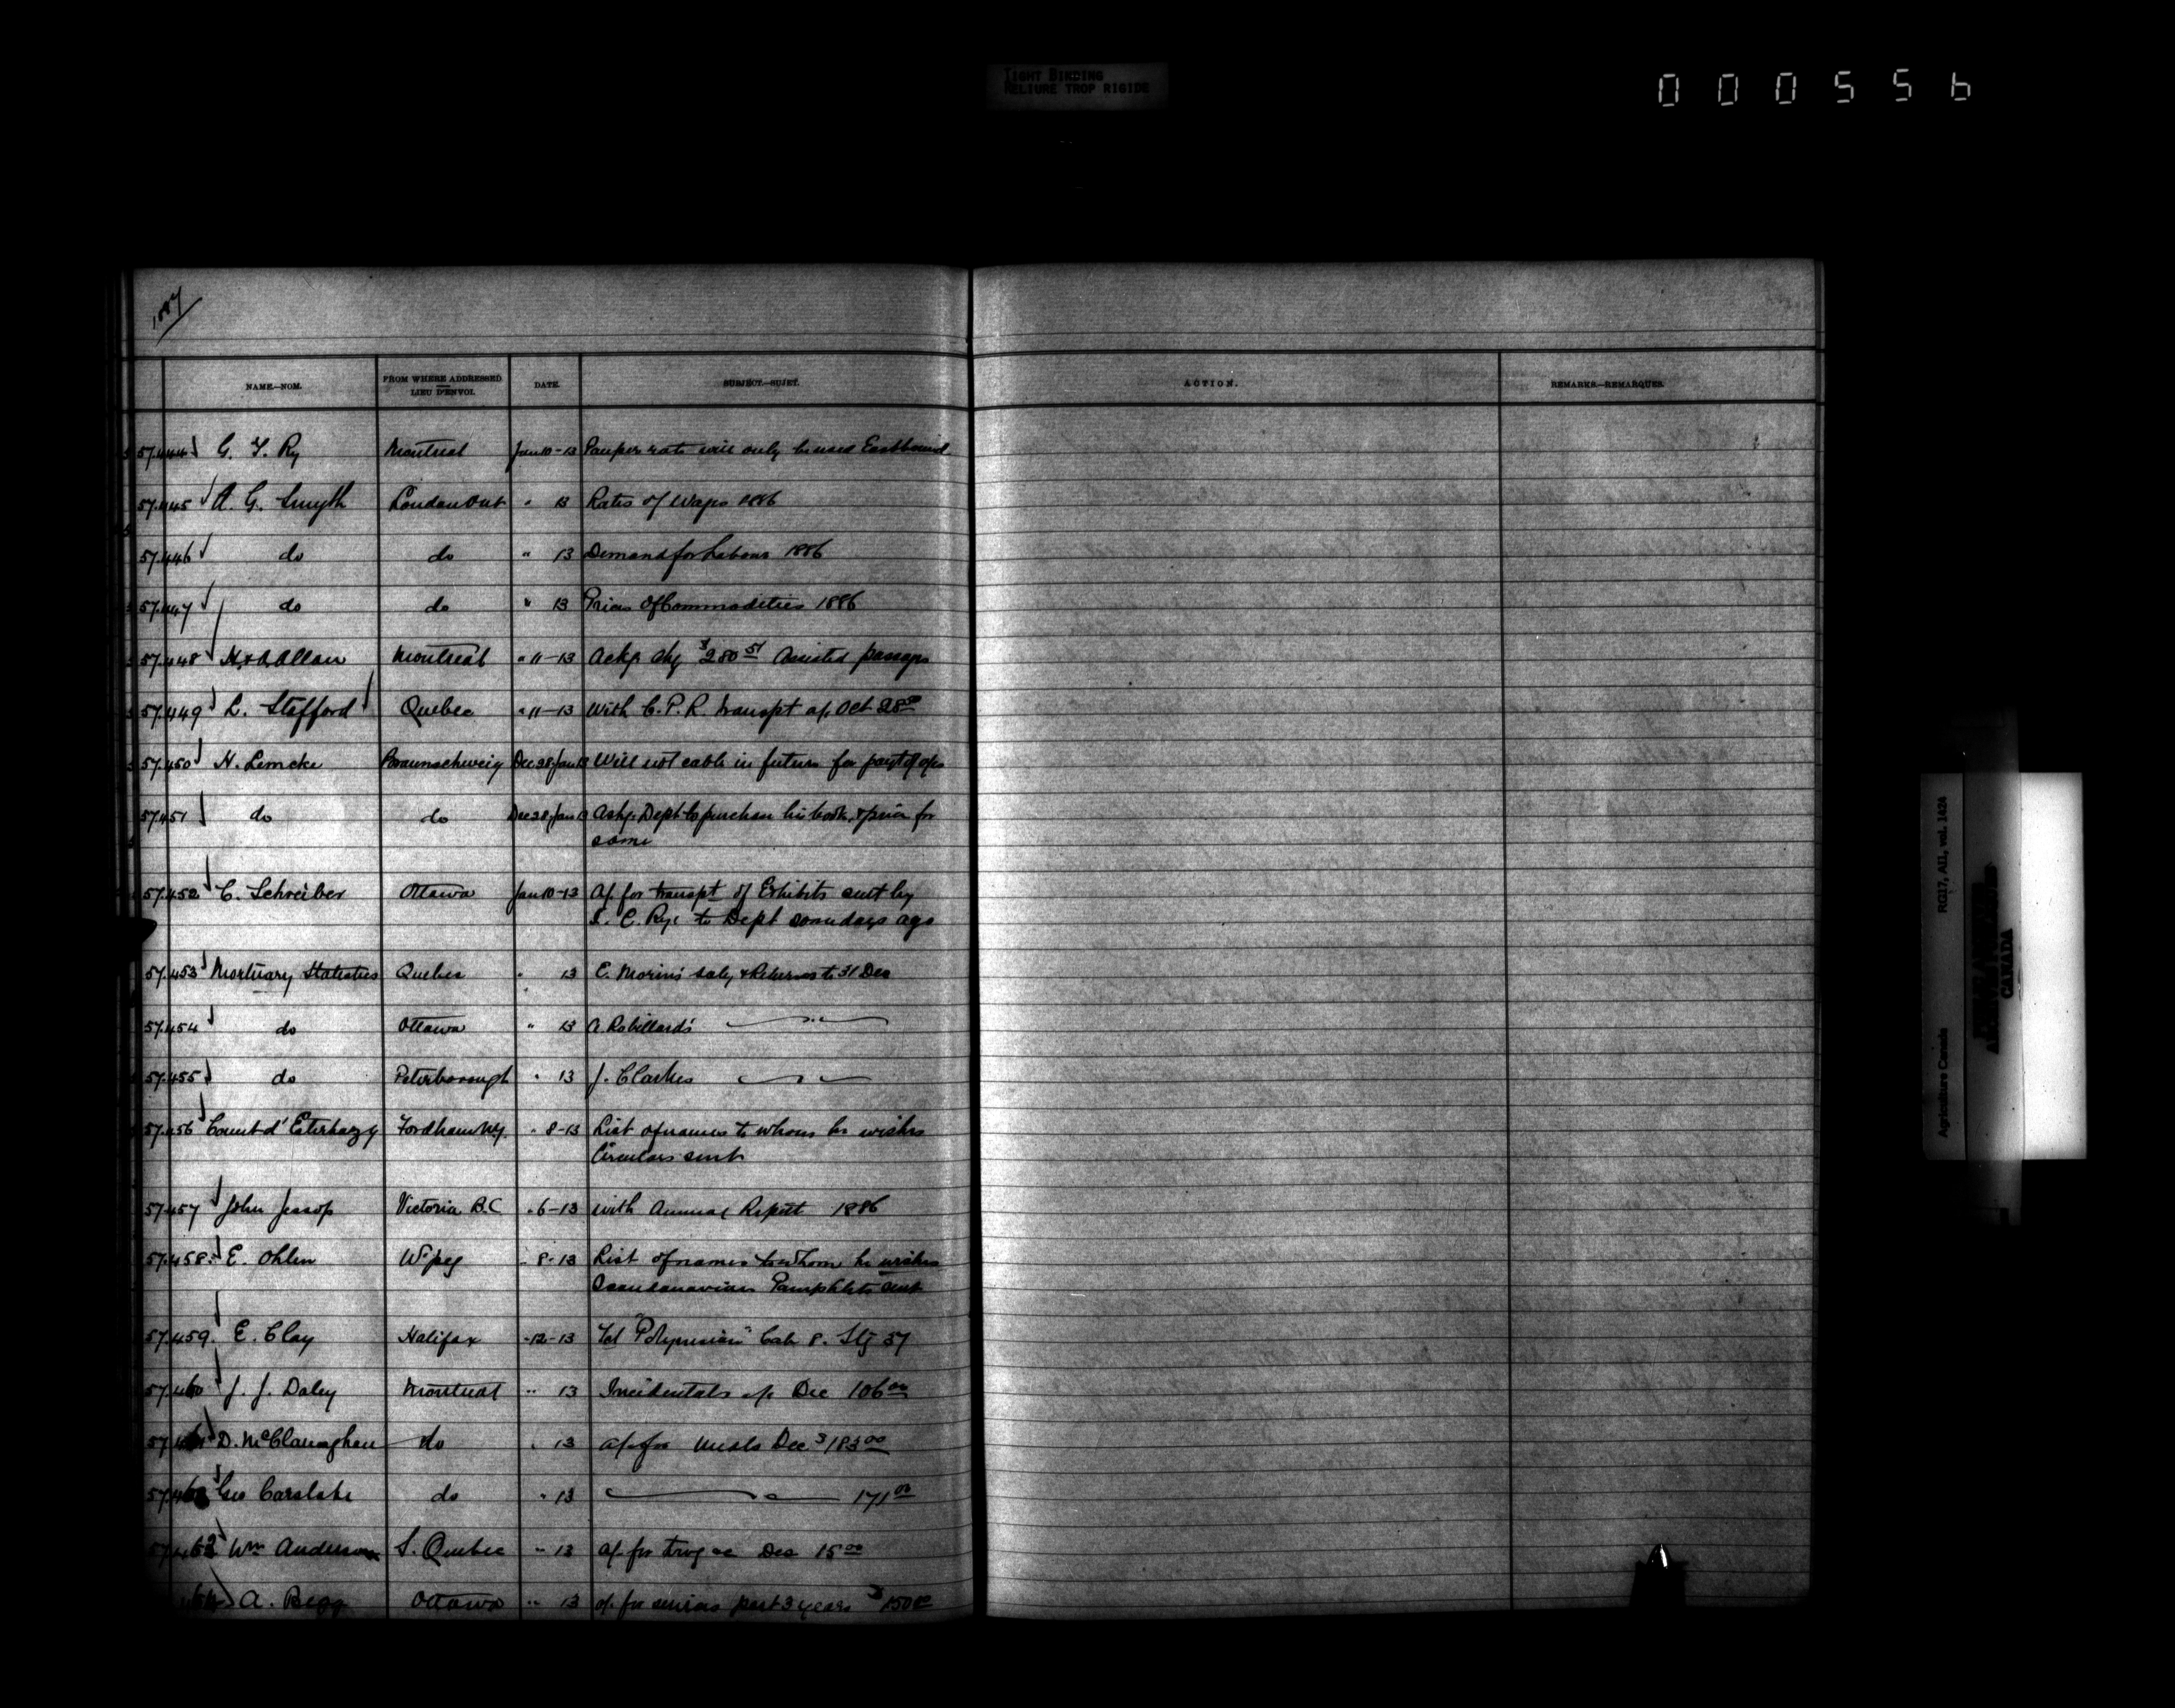 TIGHT BINDING
RELIURE TROP RIGIDE
000556
1887
NAME.—NOM. FROM WHERE ADDRESSED LIEU D'ENVOI. DATE. SUBJECT.—SUJET. ACTION. REMARKS.—REMARQUES.
57.444 G. T. Ry Montreal Jan 10-13 Pauper rate will only be used Eastbound
57.445 A. G. Smyth London Ont " 13 Rates of Wages 1886
57.446 do do " 13 Demand for Labour 1886
57.447 do do " 13 Prices of Commodities 1886
57.448 H. & A. Allan Montreal " 11-13 Ackg chq $280 51 Assisted passages
57.449 L. Stafford Quebec " 11-13 With C. P. R. transpt a/c Oct 28 00
57.450 H. Lemcke Braunschweig Dec 28 Jan 13 Will not cable in future for payt of a/cs
57.451 do do Dec 28 Jan 13 Askg Dept to purchase his book, & price for
same
57.452 C. Schreiber Ottawa Jan 10-13 A/c for transpt of Exhibits sent by
I. C. Ry: to Dept some days ago
57.453 Mortuary Statistics Quebec " 13 E. Morin's saly & Returns to 31 Dec
57.454 do Ottawa " 13 A. Robillard's
57.455 do Peterborough " 13 J. Clarkes
57.456 Count d'Esterhazy Fordham NY. " 8-13 List of names to whom he wishes
Circulars sent
57.457 John Jessop Victoria B.C " 6-13 with Annual Report 1886
57.458 E. Ohlen W'peg " 8-13 List of names to whom he wishes
Scandanavian Pamphlets sent
57.459. E. Clay Halifax " 12-13 Tel "Polynesian" Cab 8. Stg 37
57.460 J. J. Daley Montreal " 13 Incidentals a/c Dec 106 00
D. McClanaghan do " 13 a/c for meals Dec $183 00
Geo Carslake do " 13 171 00
Wm Anderson S. Quebec " 13 a/c for Dec 15 00
A. Begg Ottawa " 13 a/c for services past 3 years $1500
Agriculture Canada RG17, AII, vol. 1424
CANADA